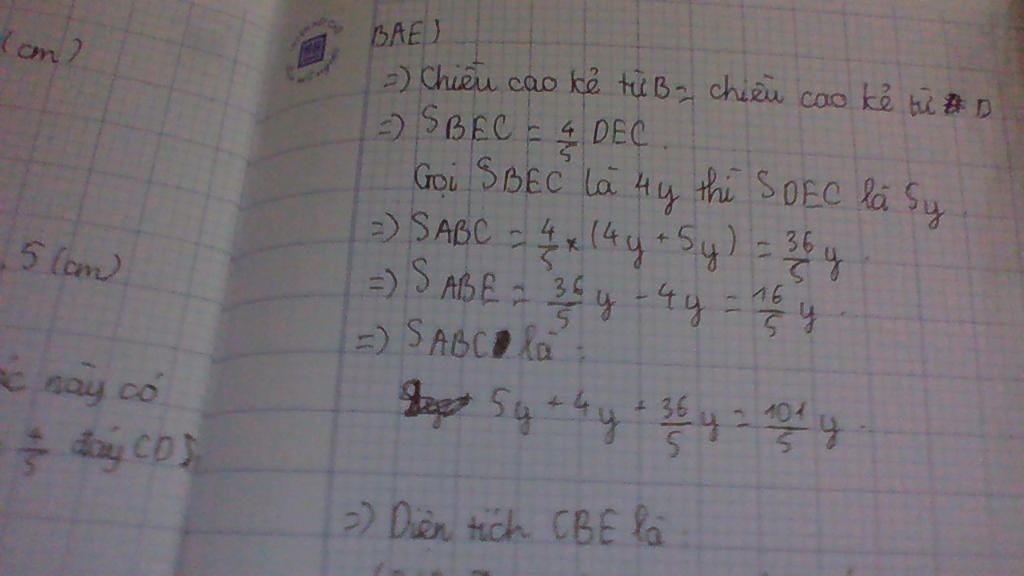 (cm)
5 (cm)
này có
4/5 đáy CD)
BAE)
=) Chiều cao kẻ từ B = chiều cao kẻ từ D
=) SBEC = 4/5 DEC.
Gọi SBEC là 4y thì SDEC là 5y.
=) SABC = 4/5 × (4y + 5y) = 36/5 y.
=) SABE = 36/5 y - 4y = 16/5 y.
=) SABC là :
5y + 4y + 36/5 y = 101/5 y.
=) Diện tích CBE là